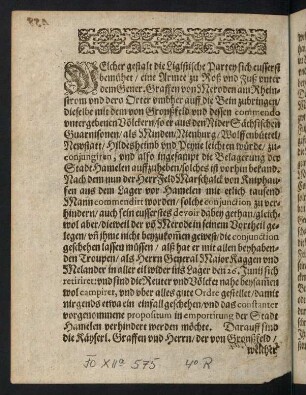 WElcher gestalt die Ligistische Partey sich eusserst
bemühet / eine Armee zu Roß und Fuß unter
dem Gener. Graffen von Meroden am Rhein-
strom und dero Orter umbher auff die Bein zubringen /
dieselbe mit dem von Gronßfeld und dessen commendo
untergebenen Völckern / so er aus den Nider Sächsischen
Guarnisonen / als Minden / Nienburg / Wolffenbüttel /
Newstatt / Hildesheimb und Peyne leichten würde / zu-
conjungirn / und also ingesampt die Belagerung der
Stadt Hameln auffzuheben / solches ist vorhin bekand.
Nach dem nun der Herr Feld Marschalck von Knuphau-
sen aus dem Läger vor Hameln mit etlich tausend
Mann commendiret worden / solche conjunction zu ver-
hindern / auch sein eusserstes devoir dabey gethan / gleich-
wol aber / dieweil der vō Merode in seinem Vortheil gele-
gen / uñ ihme nicht beyzukom̃en gewesē / die conjunction
geschehen lassen müssen / alß hat er mit allen beyhaben-
den Trouppen / als Herrn General Major Kaggen und
Melander in aller eil wider ins Läger den 26. Junij sich
retiriret : und sind die Reuter und Völcker nahe beysam̃en
wol campiret, und uber alles gute Ordre gestellet / damit
nirgends etwa ein einfall geschehen / und das constanter
vorgenommene propositum in emportirung der Stadt
Hameln verhindert werden möchte. Darauff sind
die Käyserl. Graffen und Herrn / der von Gronßfeld /
welcher
XIIa 575 4° R